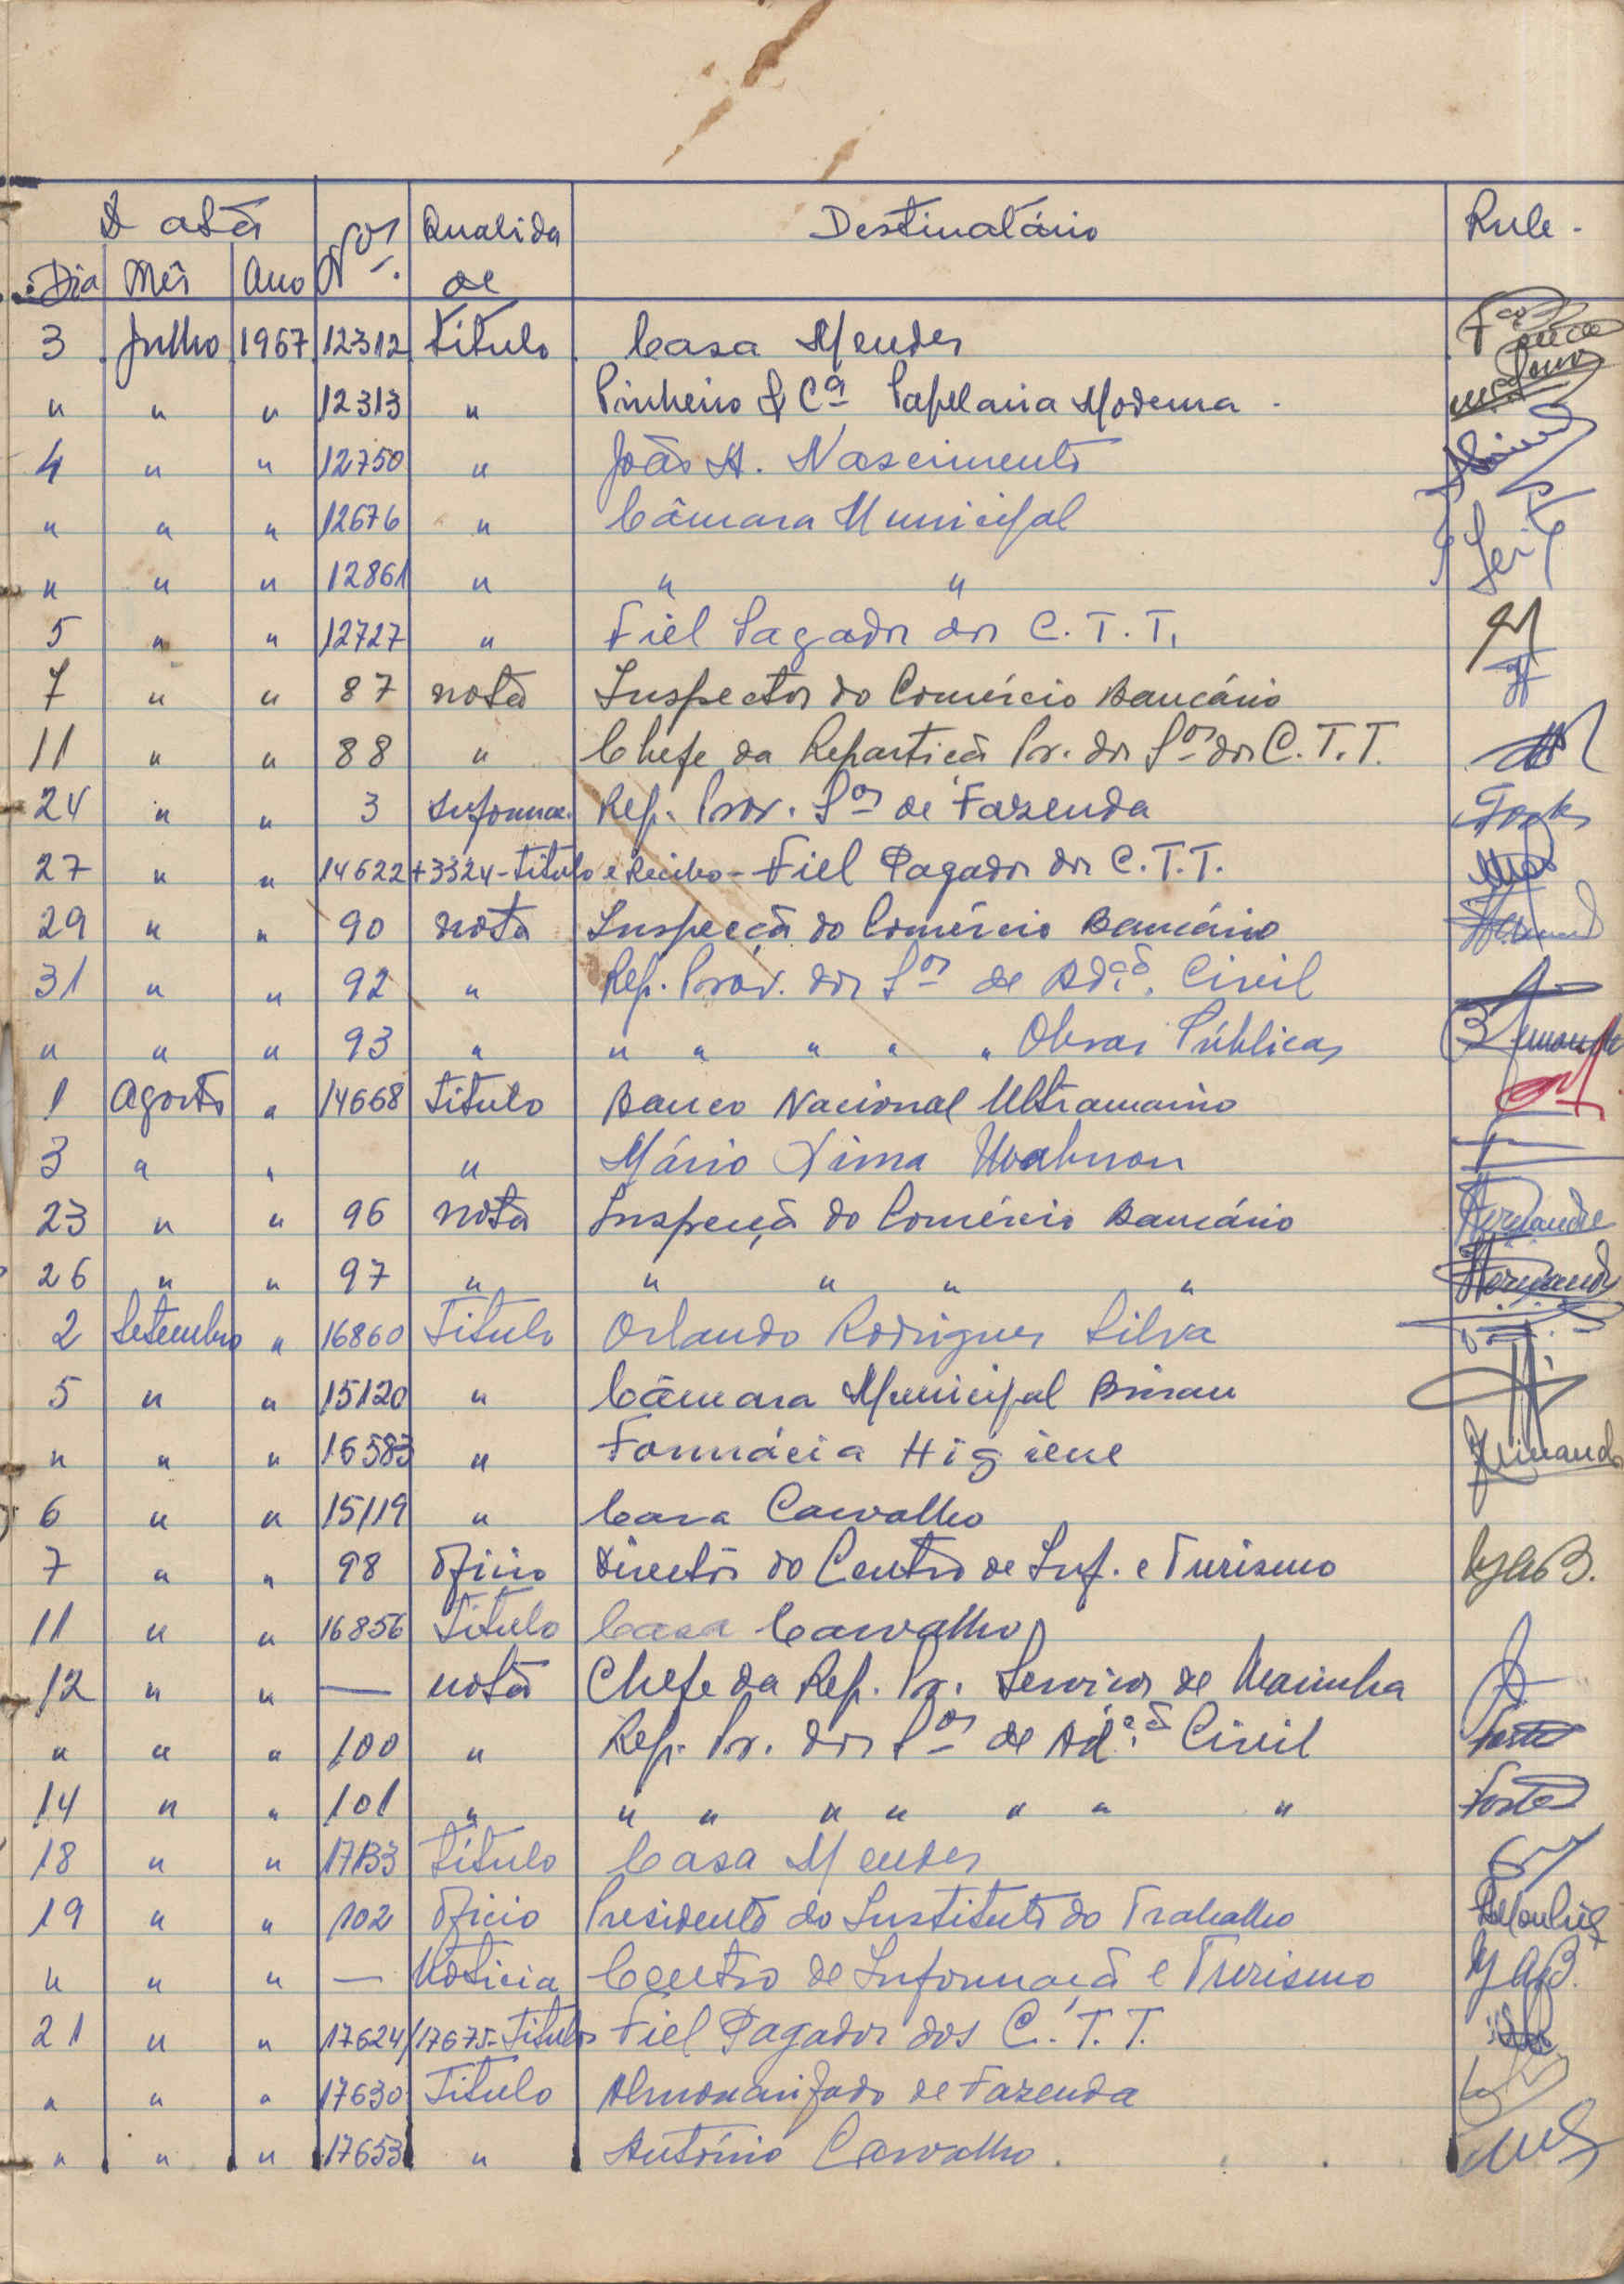 Data Nos. Qualida Destinatário Rule.
Dia Mês Ano de
3 Julho 1967 12312 Título Casa Mendes
" " " 12313 " Pinheiro & Cª Papelaria Moderna.
4 " " 12750 " João A. Nascimento
" " " 12676 " Câmara Municipal
" " " 12861 " " "
5 " " 12727 " Fiel Pagador dos C.T.T.
7 " " 87 nota Inspector do Comércio Bancário
11 " " 88 " Chefe da Repartição Pr. dos Sos dos C.T.T.
24 " " 3 Informac. Rep. Prov. Sos de Fazenda
27 " " 14622+3324-Título e Recibo - Fiel Pagador dos C.T.T.
29 " " 90 nota Inspecção do Comércio Bancário
31 " " 92 " Rep. Prov. dos Sos de Adcão. Civil
" " " 93 " " " " " " Obras Públicas
1 Agosto " 14668 Título Banco Nacional Ultramarino
3 " " " Mário Lima Wahnon
23 " " 96 nota Inspecção do Comércio Bancário
26 " " 97 " " " " "
2 Setembro " 16860 Título Orlando Rodrigues Silva
5 " " 15120 " Câmara Municipal Bissau
" " " 16583 " Farmácia Higiene
6 " " 15119 " Casa Carvalho
7 " " 98 Ofício Director do Centro de Inf. e Turismo
11 " " 16856 Título Casa Carvalho
12 " " — nota Chefe da Rep. Pr. Serviços de Marinha
" " " 100 " Rep. Pr. dos Sos de Adcão Civil
14 " " 101 " " " " " " " "
18 " " 17133 Título Casa Mendes
19 " " 102 Ofício Presidente do Instituto do Trabalho
" " " — Notícia Centro de Informação e Turismo
21 " " 17624/17675-Títulos Fiel Pagador dos C.T.T.
" " " 17630 Título Almoxarifado de Fazenda
" " " 17653 " António Carvalho.